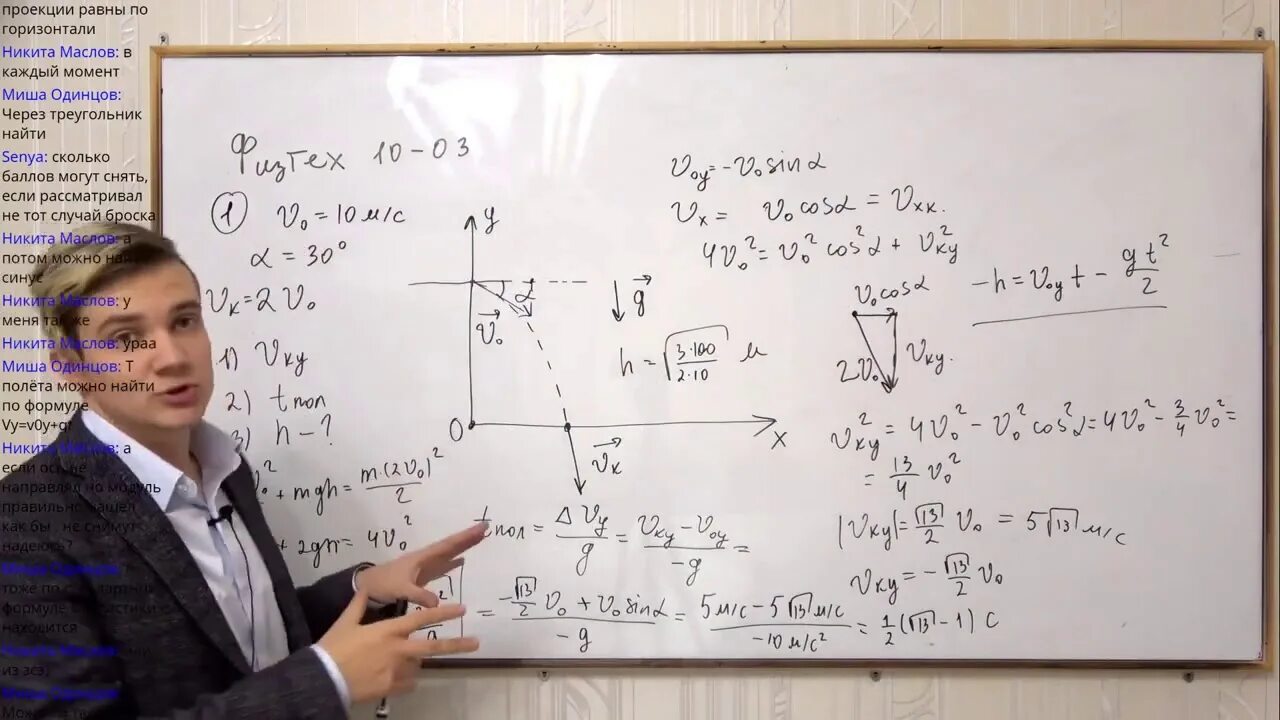 проекции равны по
горизонтали
Никита Маслов: в
каждый момент
Миша Одинцов:
Через треугольник
найти
Senya: сколько
баллов могут снять,
если рассматривал
не тот случай броска
Никита Маслов: а
потом можно
синус
Никита Маслов: у
меня так же
Никита Маслов: ураа
Миша Одинцов: Т
полёта можно найти
по формуле
Vy=v0y+gt
Никита Маслов: а
если ось не
направлял но модуль
правильно нашел
как бы , не снимут
надеюсь?
Миша Одинцов:
тоже по
формуле
находится
Никита Маслов:
из зсэ
Миша Одинцов:
Физтех 10-03
① v₀ = 10 м/с
α = 30°
vₖ = 2v₀
1) vₖy
2) tпол
3) h - ?
+ mgh = m·(2v₀)²/2
+ 2gh = 4v₀²
y
α
v⃗₀
g⃗
0
x
v⃗ₖ
h = √(3·100/2·10) м
v₀y = -v₀ sin α
vₓ = v₀ cos α = vₓₖ.
4v₀² = v₀² cos² α + vₖy²
-h = v₀y t - gt²/2
v₀ cos α
2v₀
vₖy.
vₖy² = 4v₀² - v₀² cos² α = 4v₀² - 3/4 v₀² =
= 13/4 v₀²
|vₖy| = √13/2 v₀ = 5√13 м/с
vₖy = - √13/2 v₀
tпол = Δvy/g = (vₖy - v₀y)/-g =
= (-√13/2 v₀ + v₀ sin α)/-g = (5 м/с - 5√13 м/с)/-10 м/с² = 1/2 (√13 - 1) с